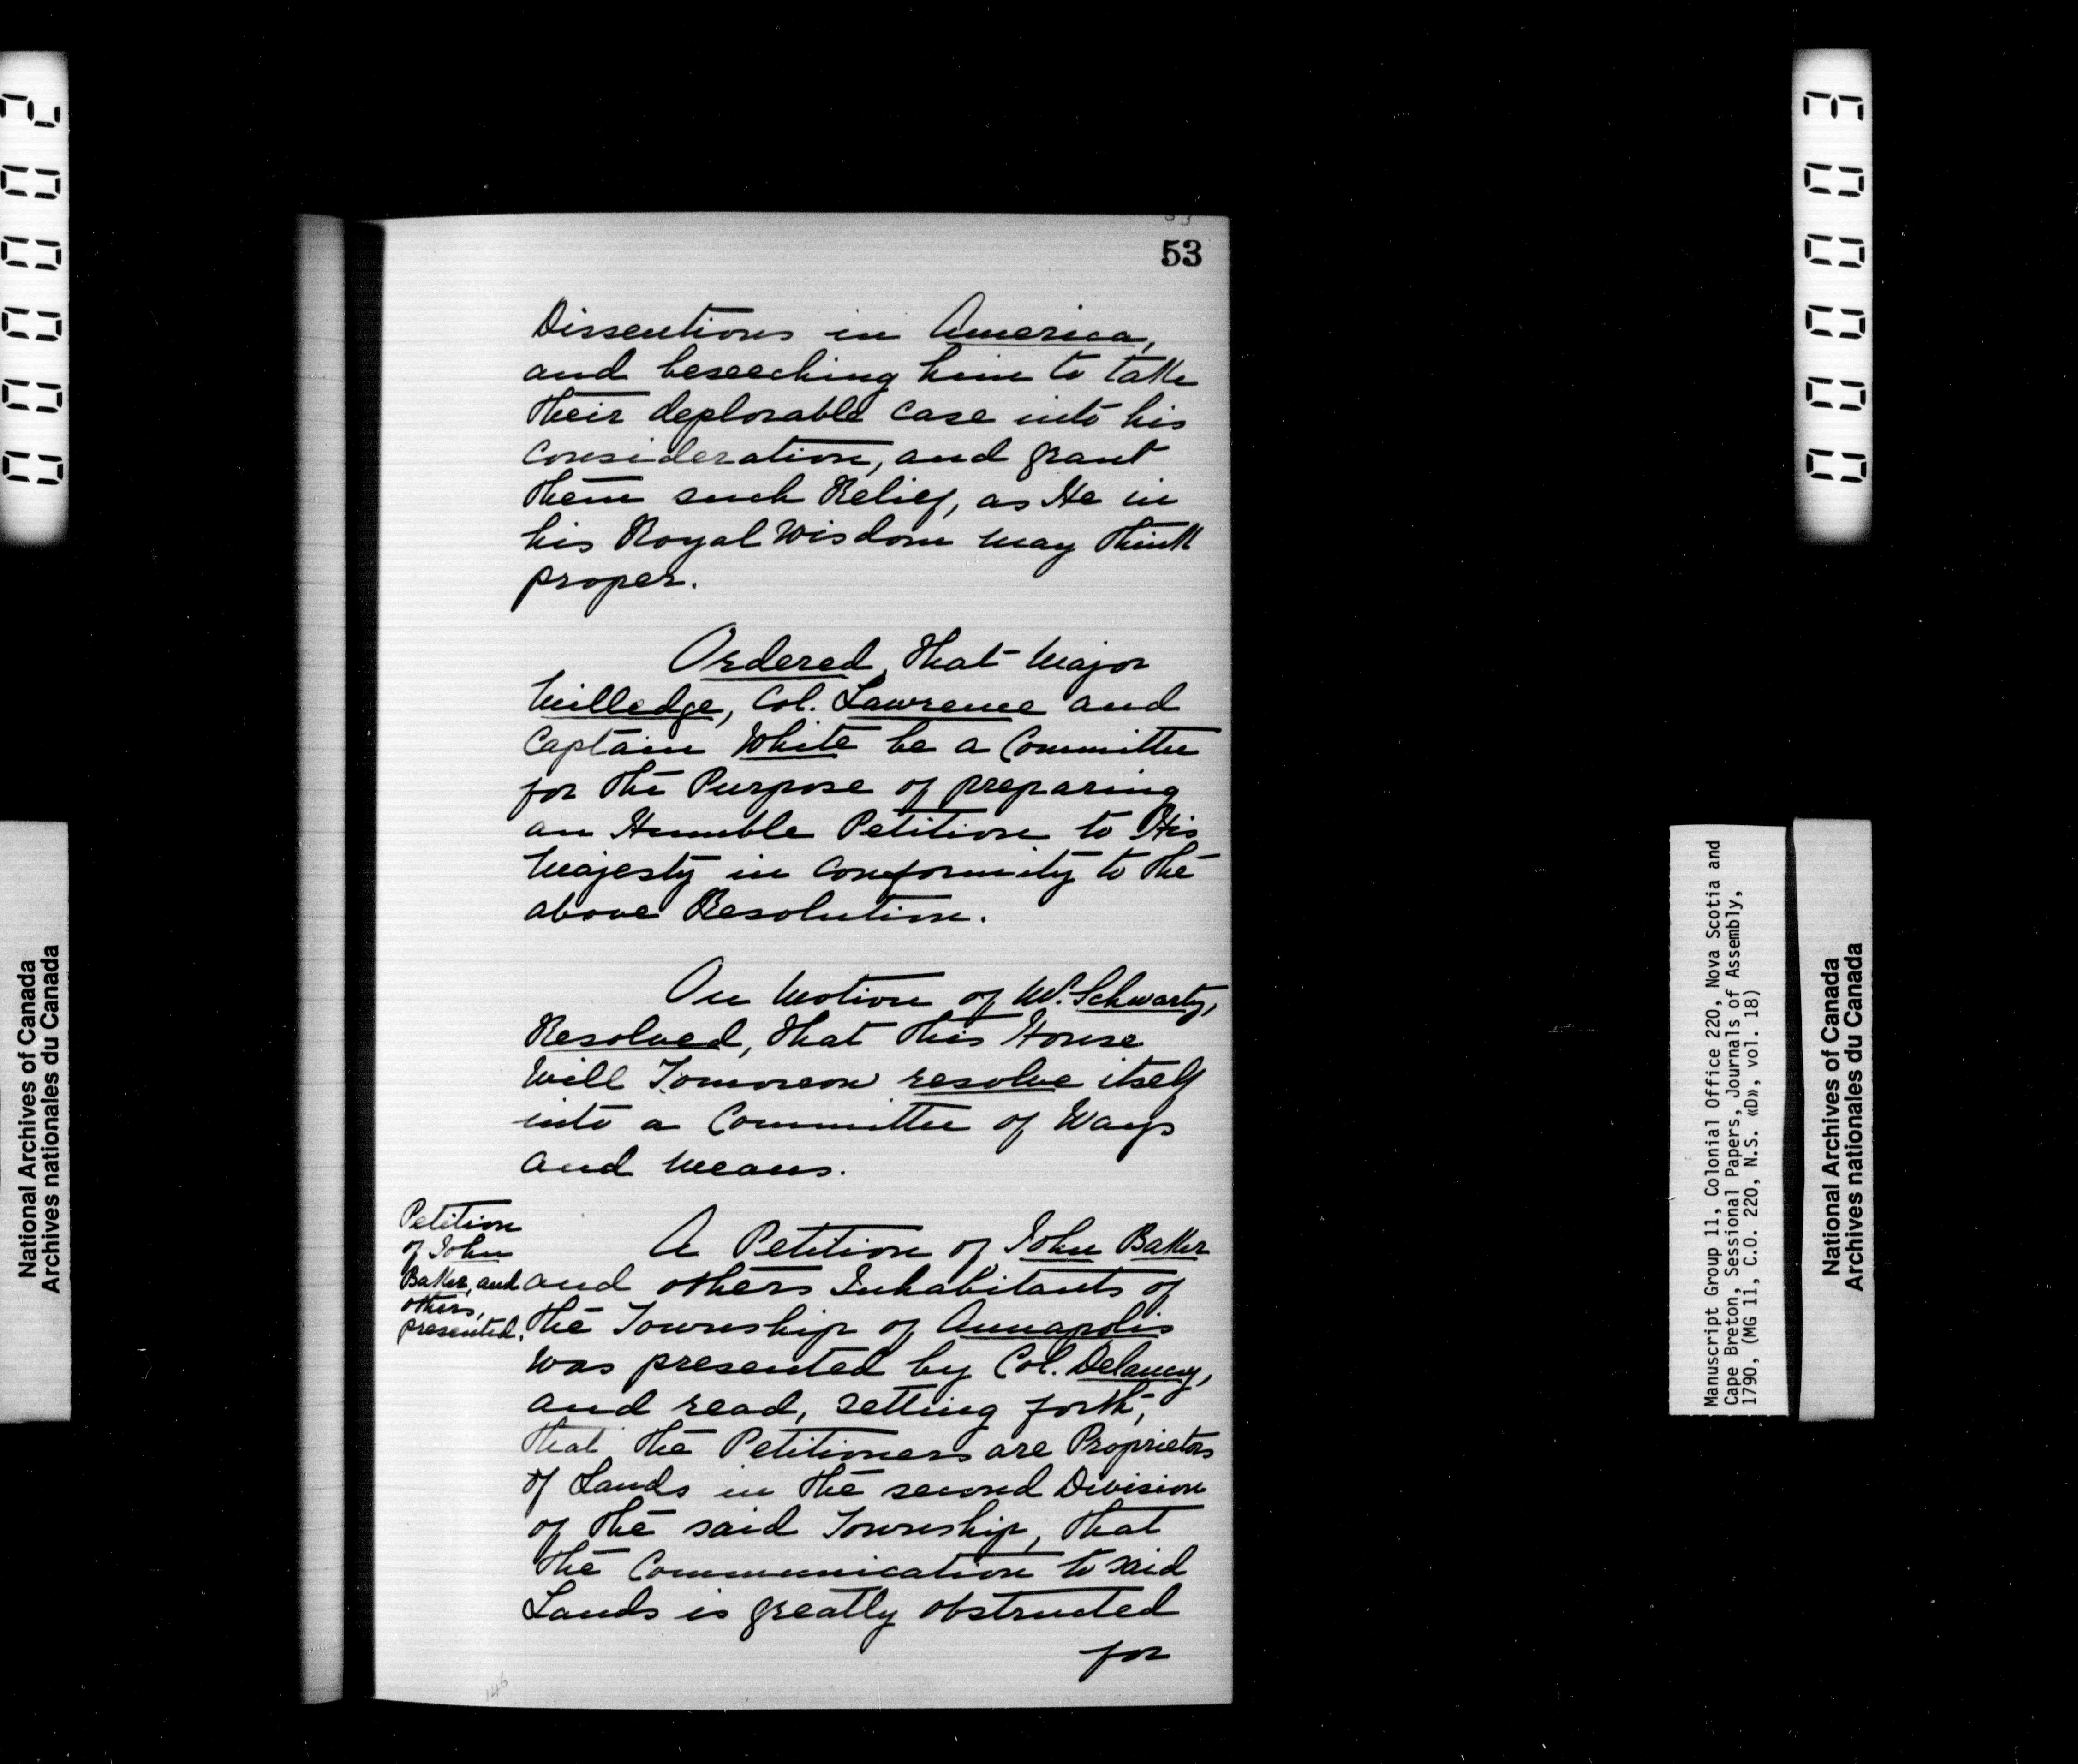 53
53
Dissentions in America,
and beseeching him to take
their deplorable case into his
consideration, and grant
them such Relief, as He in
his Royal Wisdom may think
proper.
Ordered, that Major
Milledge, Col. Lawrence and
Captain White be a Committee
for the Purpose of preparing
an Humble Petition to His
Majesty in conformity to the
above Resolution.
On Motion of Mr. Schwartz,
Resolved, that this House
will Tomorrow resolve itself
into a Committee of Ways
and Means.
Petition
of John
Baker, and
others,
presented.
A Petition of John Baker
and others Inhabitants of
the Township of Annapolis
was presented by Col. Delancy,
and read, setting forth,
that the Petitioners are Proprietors
of Lands in the second Division
of the said Township, that
the Communication to said
Lands is greatly obstructed
for
146
000002
National Archives of Canada
Archives nationales du Canada
000003
Manuscript Group 11, Colonial Office 220, Nova Scotia and
Cape Breton, Sessional Papers, Journals of Assembly,
1790, (MG 11, C.O. 220, N.S. «D», vol. 18)
National Archives of Canada
Archives nationales du Canada